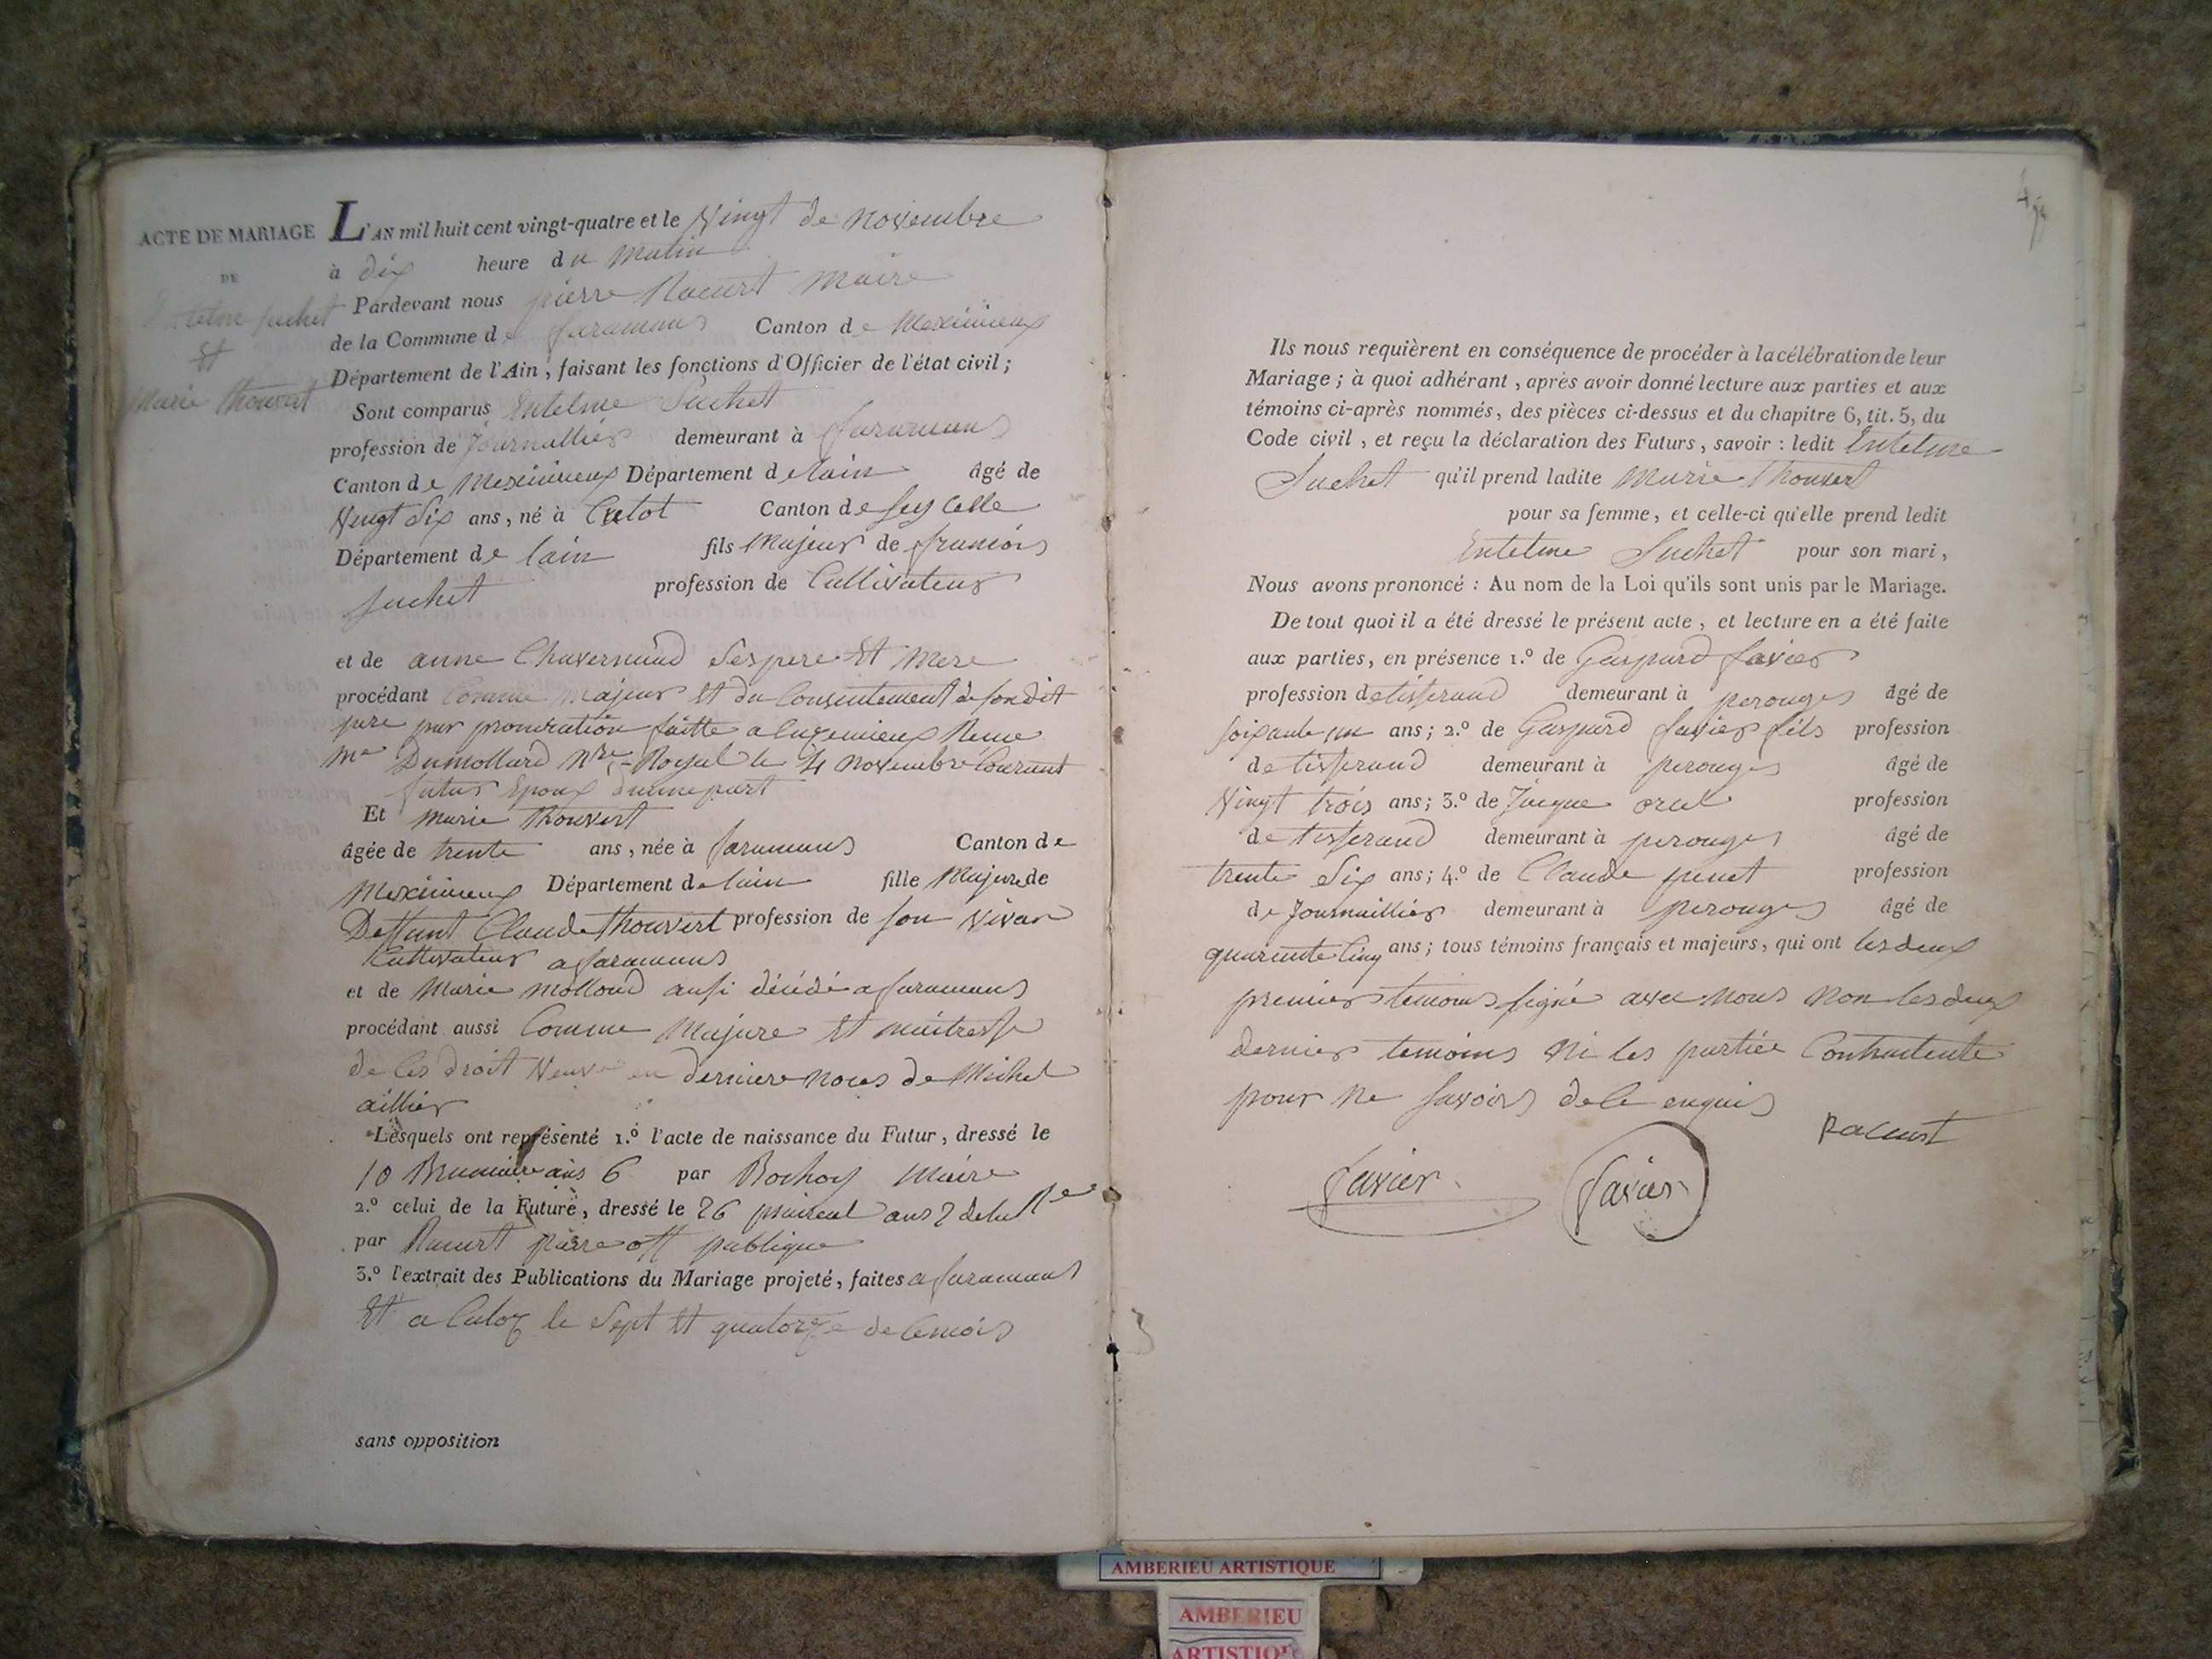 ACTE DE MARIAGE
DE
Entelme Suchet
Et
Marie Thouvert
L'AN mil huit cent vingt-quatre et le Vingt de novembre
à dix heure du Matin
Pardevant nous pierre Racurt Maire
de la Commune de faramans Canton de Meximieux
Département de l'Ain, faisant les fonctions d'Officier de l'état civil;
Sont comparus Entelme Suchet
profession de Journallier demeurant à faramans
Canton de Meximieux Département de lain âgé de
Vingt Six ans, né à Culot Canton de Seyscelle
Département de lain fils Majeur de francois
Suchet profession de Cultivateur
et de anne Chavernaud Ses pere Et Mere
procédant Comme Majeur Et du Consentement de son dit
pere par procuration faitte a Mr
Dumollard Nre Royal le 4 novembre Courant
futur Epoux d'unne part
Et marie Thouvert
âgée de trente ans, née à faramans Canton de
Meximieux Département de lain fille Majure de
Deffunt Claude Thouvert profession de son vivan
Cultivateur a faramans
et de Marie Mollond aussi décédé a faramans
procédant aussi Comme Majure Et maitresse
de Ces droit Veuve en derniere noces de Michel
aillier
Lesquels ont représenté 1.º l'acte de naissance du Futur, dressé le
10 Brumaire ans 6 par Rochoy Maire
2.º celui de la Future, dressé le 26 prairial ans 2 de la Re
par Racurt pierre off publique
3.º l'extrait des Publications du Mariage projeté, faites a faramans
Et a Culoz le Sept Et quatorze de Cemois
sans opposition
Ils nous requièrent en conséquence de procéder à la célébration de leur
Mariage; à quoi adhérant, après avoir donné lecture aux parties et aux
témoins ci-après nommés, des pièces ci-dessus et du chapitre 6, tit. 5, du
Code civil, et reçu la déclaration des Futurs, savoir: ledit Entelme
Suchet qu'il prend ladite Marie Thouvert
pour sa femme, et celle-ci qu'elle prend ledit
Entelme Suchet pour son mari,
Nous avons prononcé: Au nom de la Loi qu'ils sont unis par le Mariage.
De tout quoi il a été dressé le présent acte, et lecture en a été faite
aux parties, en présence 1.º de Gaspard favier
profession de tisserand demeurant à perouges âgé de
soixante un ans; 2.º de Gaspard favier fils profession
de tisserand demeurant à perouges âgé de
Vingt trois ans; 3.º de Jacque profession
de tisserand demeurant à perouges âgé de
trente Six ans; 4.º de Claude penet profession
de Journaillier demeurant à perouges âgé de
quarante Cinq ans; tous témoins français et majeurs, qui ont les deux
premier temoins signé avec nous non les deux
dernier temoins Ni les partiée Contractente
pour ne savoir de ce enquis
Racurt
favier
favier
AMBERIEU ARTISTIQUE
AMBERIEU
ARTISTIQUE